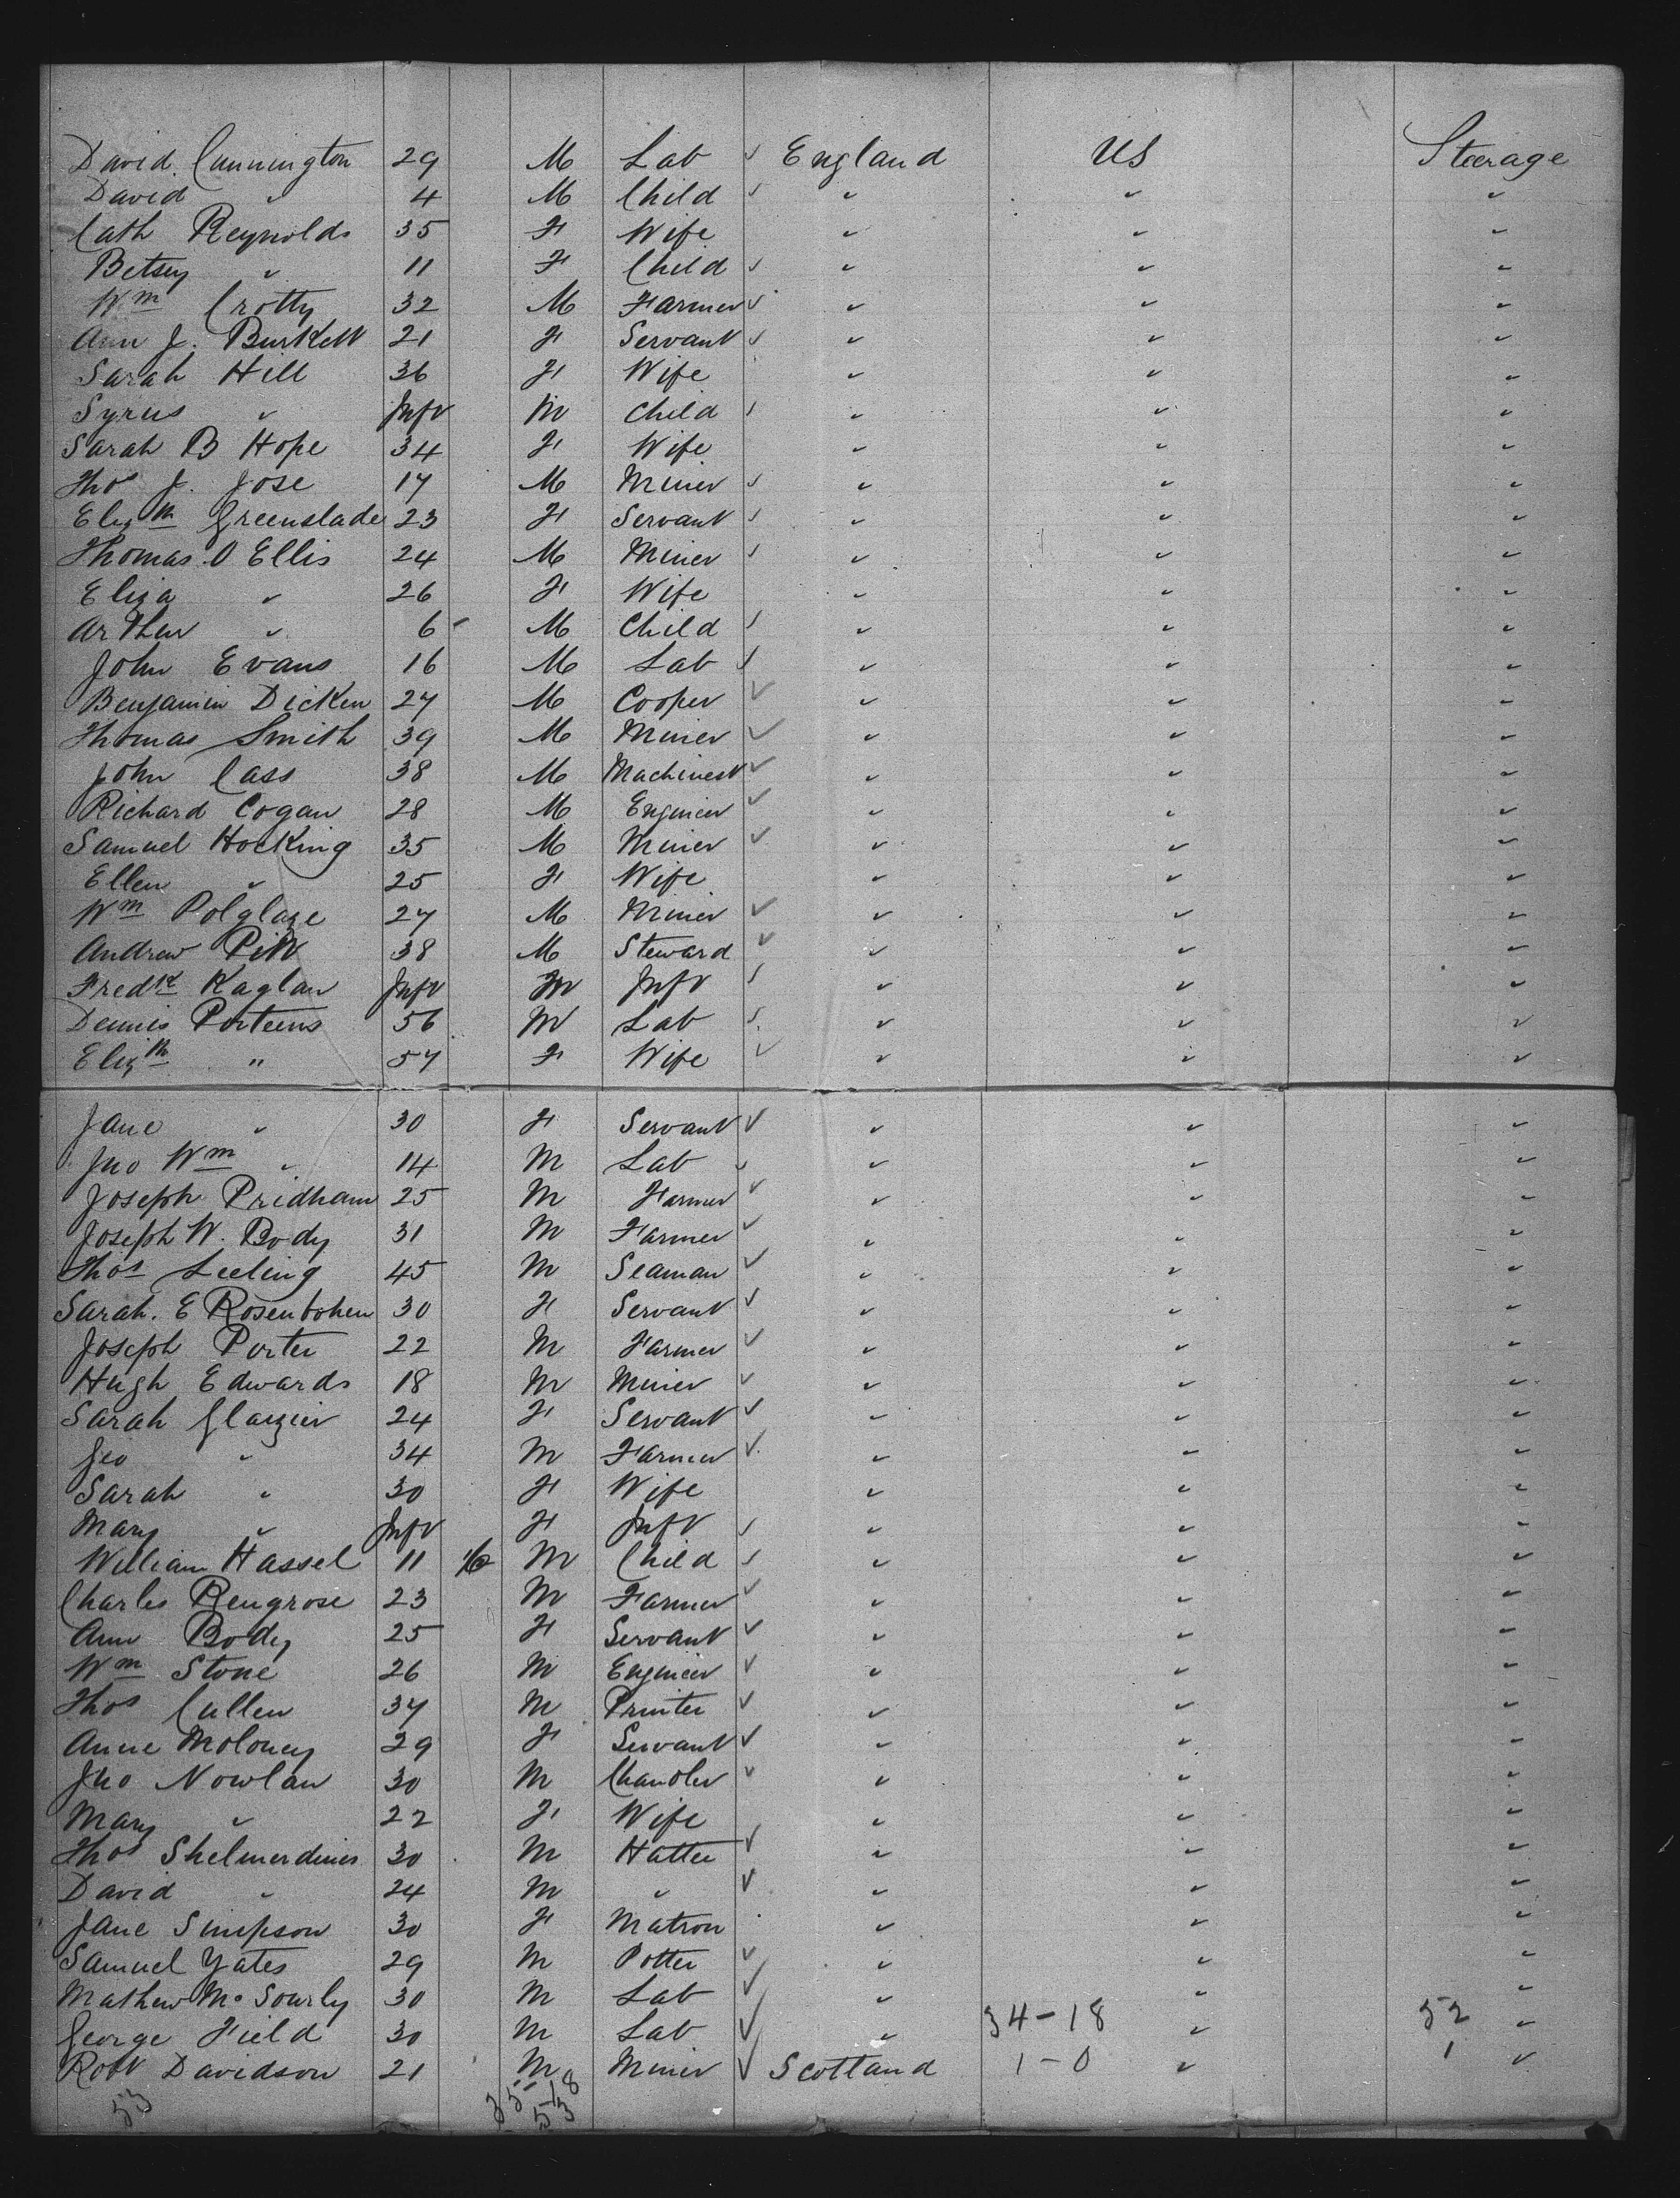 David Cunnington 29 M Lab ✓ England US Steerage
David " 4 M Child ✓ " " "
Cath Reynolds 35 F Wife " " "
Betsey " 11 F Child ✓ " " "
Wm Crotty 32 M Farmer ✓ " " "
Ann J. Burkett 21 F Servant ✓ " " "
Sarah Hill 36 F Wife " " "
Syrus " Inft M Child ✓ " " "
Sarah B Hope 34 F Wife " " "
Thos J. Jose 17 M Miner ✓ " " "
Elizth Greenslade 23 F Servant ✓ " " "
Thomas O Ellis 24 M Miner ✓ " " "
Eliza " 26 F Wife " " "
Arthur " 6 M Child ✓ " " "
John Evans 16 M Lab ✓ " " "
Benjamin Dicken 27 M Cooper ✓ " " "
Thomas Smith 39 M Miner ✓ " " "
John Cass 38 M Machinest ✓ " " "
Richard Cogan 28 M Engineer ✓ " " "
Samuel Hocking 35 M Miner ✓ " " "
Ellen " 25 F Wife " " "
Wm Polglaze 27 M Miner ✓ " " "
Andrew Pitt 38 M Steward ✓ " " "
Fredk Raglan Inft M Inft ✓ " " "
Dennis Porteens 56 M Lab ✓ " " "
Elizth " 57 F Wife ✓ " " "
Jane " 30 F Servant ✓ " " "
Jno Wm " 14 M Lab ✓ " " "
Joseph Pridham 25 M Farmer ✓ " " "
Joseph W. Body 31 M Farmer ✓ " " "
Thos Leeling 45 M Seaman ✓ " " "
Sarah. E Rosenbohen 30 F Servant ✓ " " "
Joseph Porter 22 M Farmer ✓ " " "
Hugh Edwards 18 M Miner ✓ " " "
Sarah Glazier 24 F Servant ✓ " " "
Geo " 34 M Farmer ✓ " " "
Sarah " 30 F Wife " " "
Mary " Inft F Inft ✓ " " "
William Hassel 11 M Child ✓ " " "
Charles Rengrose 23 M Farmer ✓ " " "
Ann Body 25 F Servant ✓ " " "
Wm Stone 26 M Engineer ✓ " " "
Thos Cullen 37 M Printer ✓ " " "
Anne Moloney 29 F Servant ✓ " " "
Jno Nowlan 30 M Chandler ✓ " " "
Mary " 22 F Wife " " "
Thos Shelmerdines 30 M Hatter ✓ " " "
David " 24 M " ✓ " " "
Jane Simpson 30 F Matron " " "
Samuel Yates 29 M Potter ✓ " " "
Mathew Mc Sourly 30 M Lab ✓ " " "
George Field 30 M Lab ✓ " 34-18 " 52 "
Robt Davidson 21 M Miner ✓ Scotland 1-0 " 1 "
53 35-18
53